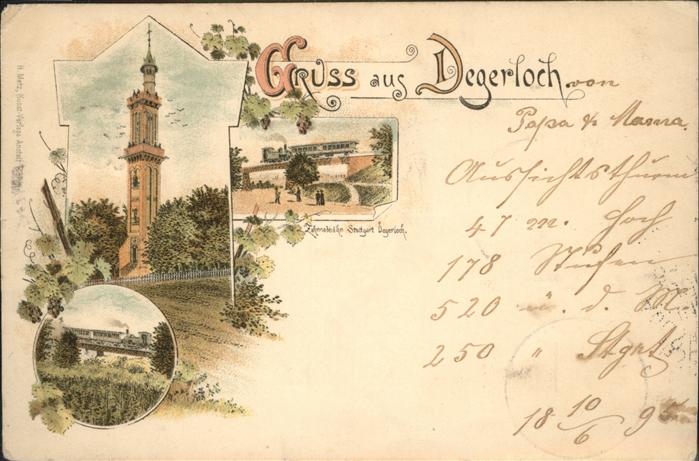 H. Metz, Kunst-Verlags Anstalt
Gruss aus Degerloch von
Papa & Mama.
Zahnradbahn Stuttgart Degerloch.
Aussichtsthurm
47 m. hoch
178 Stufen
520 ". d. M.
250 " Stgrt
18 10/6 95